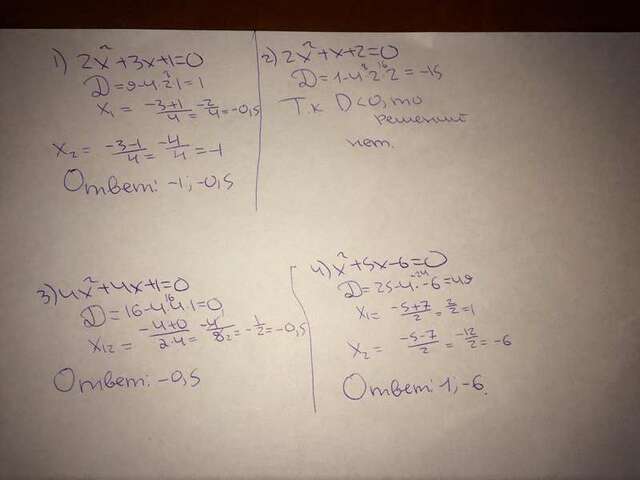 1) 2x²+3x+1=0
D=9-4·2·1=1
x₁ = -3+1/4 = -2/4 = -0,5
x₂ = -3-1/4 = -4/4 = -1
Ответ: -1; -0,5
2) 2x²+x+2=0
D=1-4·2·2=-15
Т.к D<0, то
решений
нет.
3) 4x²+4x+1=0
D=16-4·4·1=0
x₁₂ = -4+0/2·4 = -4/8 = -1/2 = -0,5
Ответ: -0,5
4) x²+5x-6=0
D=25-4·-6=49
x₁ = -5+7/2 = 2/2 = 1
x₂ = -5-7/2 = -12/2 = -6
Ответ: 1; -6.